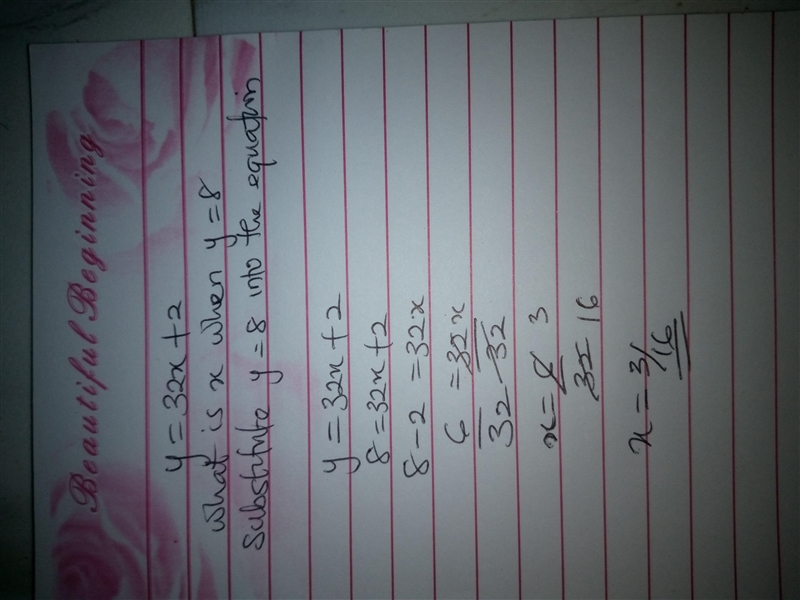 Beautiful Beginning
y = 32x + 2
What is x when y = 8
Substitute y = 8 into the equation
y = 32x + 2
8 = 32x + 2
8 - 2 = 32x
6 = 32x
32 32
x = 6 3
32 16
x = 3/16